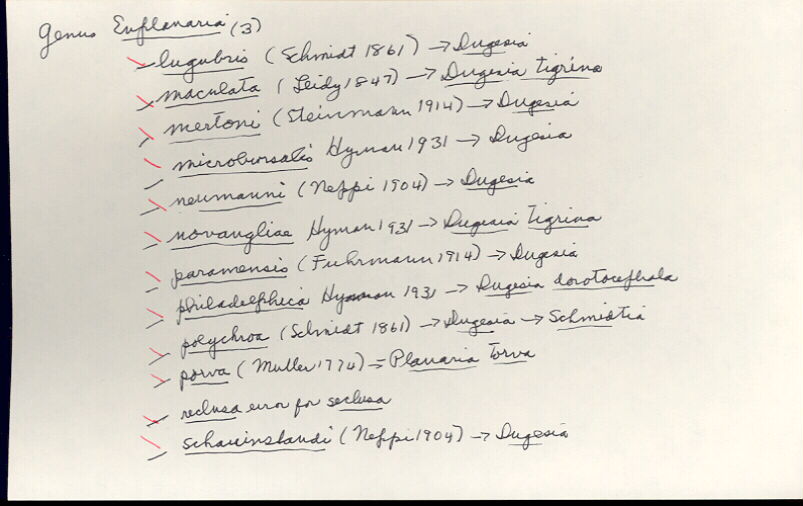 Genus Euplanaria (3)
lugubris (Schmidt 1861) → Dugesia
maculata (Leidy 1847) → Dugesia tigrina
mertoni (Steinmann 1914) → Dugesia
microbursalis Hyman 1931 → Dugesia
neumanni (Neppi 1904) → Dugesia
novangliae Hyman 1931 → Dugesia tigrina
paramensis (Fuhrmann 1914) → Dugesia
philadelphica Hyman 1931 → Dugesia dorotocephala
polychroa (Schmidt 1861) → Dugesia → Schmidtia
porva (Muller 1774) = Planaria torva
reclusa error for seclusa
schauinslandi (Neppi 1904) → Dugesia